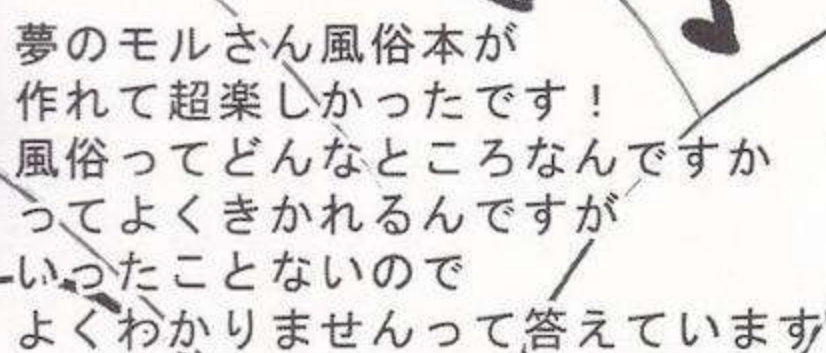 夢のモルさん風俗本が
作れて超楽しかったです！
風俗ってどんなところなんですか
ってよくきかれるんですが
いったことないので
よくわかりませんって答えています